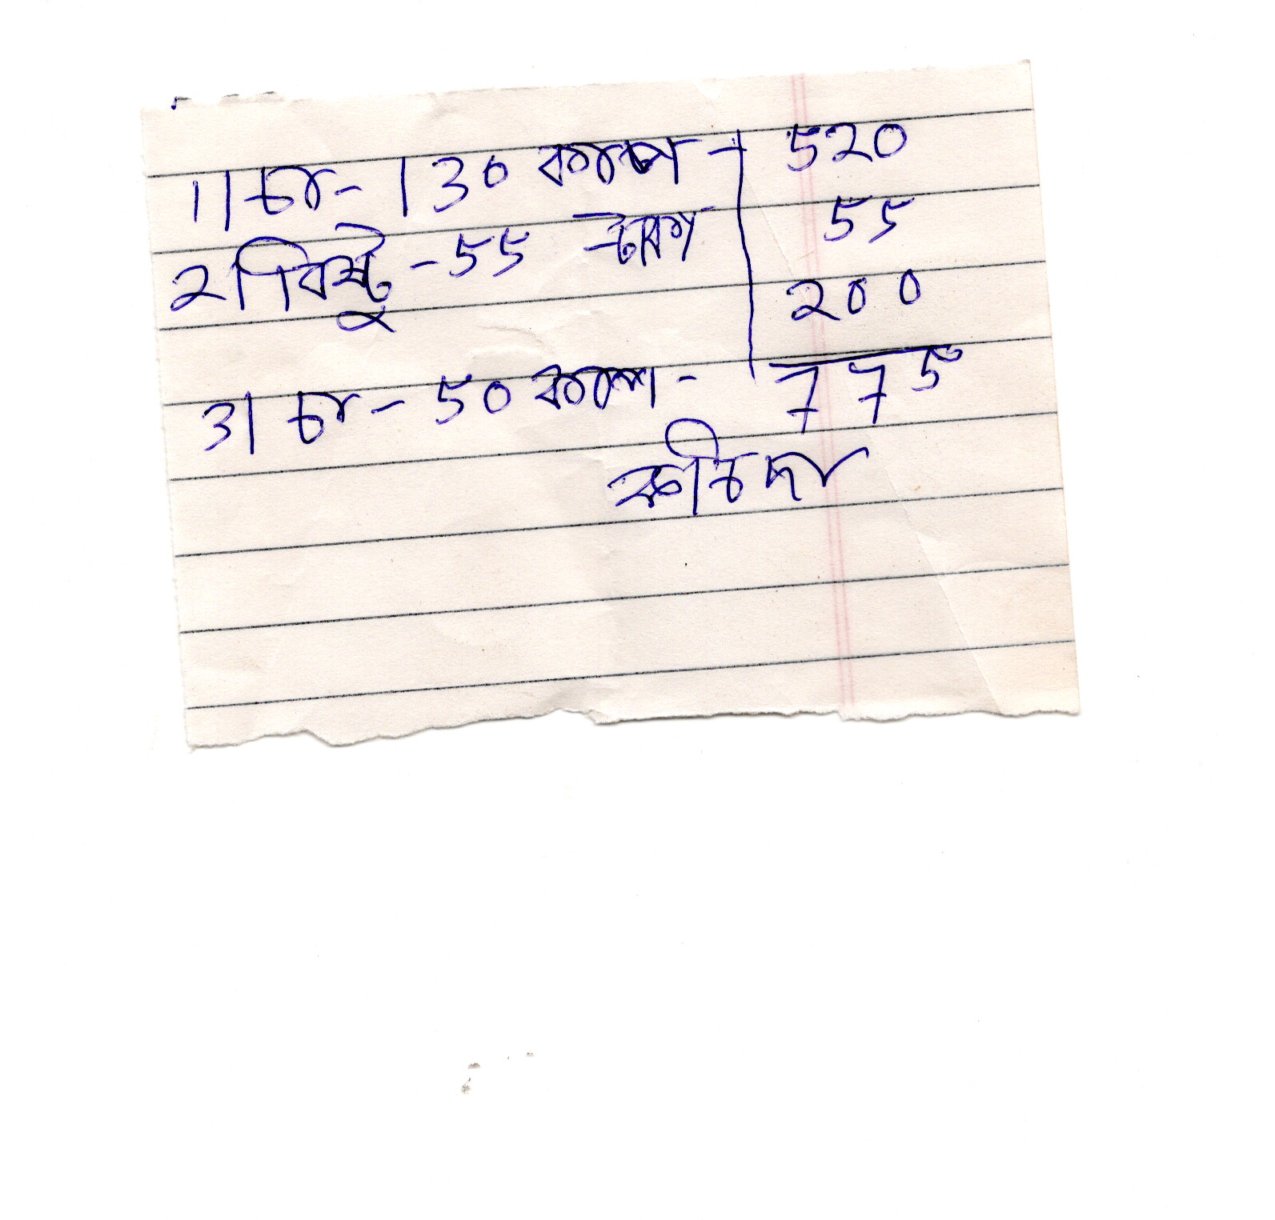 1| চা - 130 কাপ - 520
2| বিস্কুট - 55 টাকা 55
200
3| চা - 50 কাপ - 775
কচিদা